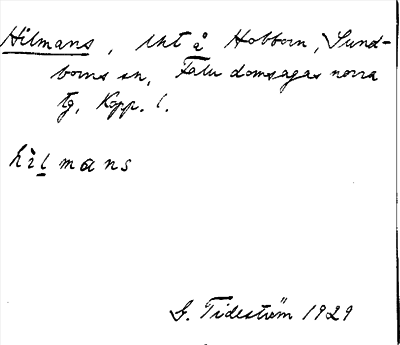 Hilmans, lht å Hobborn, Sund-
borns sn, Falu domsagas norra
tg, Kopp. l.
hìlmans
G. Tideström 1929